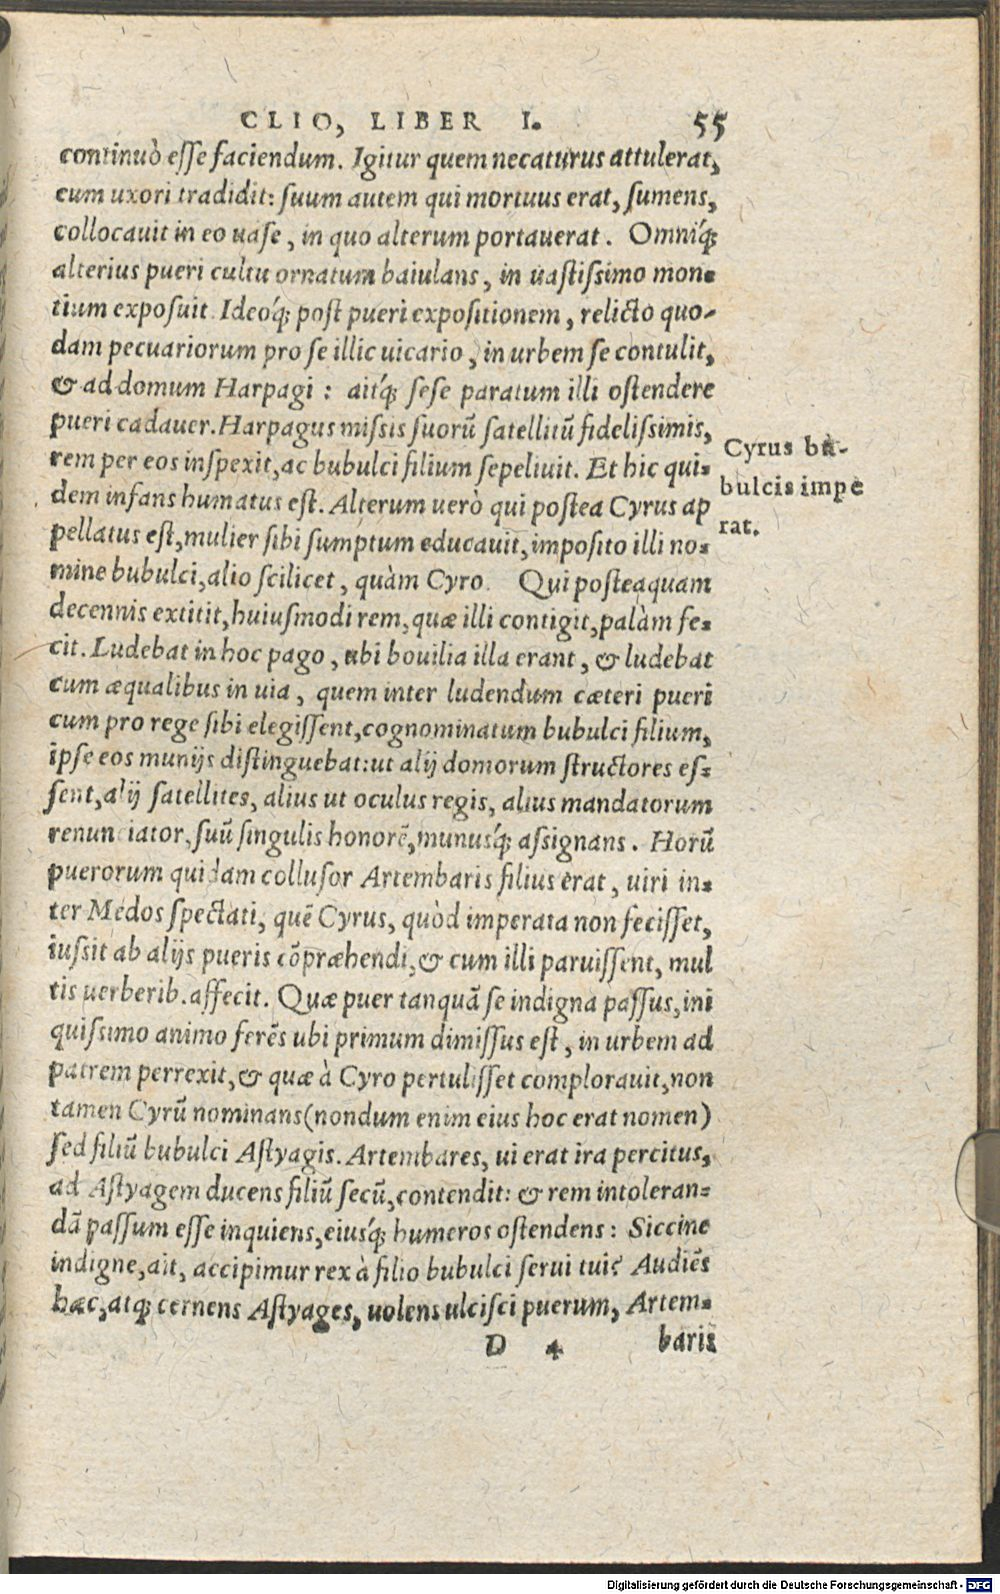 CLIO, LIBER I. 55
continuò esse faciendum. Igitur quem necaturus attulerat,
eum uxori tradidit: suum autem qui mortuus erat, sumens,
collocauit in eo uase, in quo alterum portauerat. Omniq́;
alterius pueri cultu ornatum baiulans, in uastissimo mon-
tium exposuit. Ideoq́; post pueri expositionem, relicto quo-
dam pecuariorum pro se illic uicario, in urbem se contulit,
& ad domum Harpagi: aitq́; sese paratum illi ostendere
pueri cadauer. Harpagus missis suorũ satellitũ fidelissimis,
rem per eos inspexit, ac bubulci filium sepeliuit. Et hic qui-
dem infans humatus est. Alterum uerò qui postea Cyrus ap
pellatus est, mulier sibi sumptum educauit, imposito illi no-
mine bubulci, alio scilicet, quàm Cyro. Qui posteaquam
decennis extitit, huiusmodi rem, quæ illi contigit, palàm fe-
cit. Ludebat in hoc pago, ubi bouilia illa erant, & ludebat
cum æqualibus in uia, quem inter ludendum cæteri pueri
cum pro rege sibi elegissent, cognominatum bubulci filium,
ipse eos munijs distinguebat: ut alij domorum structores es-
sent, alij satellites, alius ut oculus regis, alius mandatorum
renunciator, suũ singulis honorẽ, munusq́; assignans. Horũ
puerorum quidam collusor Artembaris filius erat, uiri in-
ter Medos spectati, quẽ Cyrus, quòd imperata non fecisset,
iussit ab alijs pueris cõpræhendi, & cum illi paruissent, mul
tis uerberib. affecit. Quæ puer tanquã se indigna passus, ini
quissimo animo ferẽs ubi primum dimissus est, in urbem ad
patrem perrexit, & quæ à Cyro pertulisset complorauit, non
tamen Cyrũ nominans (nondum enim eius hoc erat nomen)
sed filiũ bubulci Astyagis. Artembares, ui erat ira percitus,
ad Astyagem ducens filiũ secũ, contendit: & rem intoleran-
dã passum esse inquiens, eiusq́; humeros ostendens: Siccine
indigne, ait, accipimur rex à filio bubulci serui tui? Audiẽs
hæc, atq; cernens Astyages, uolens ulcisci puerum, Artem-
D 4 baris
Cyrus bu-
bulcis impe
rat.
Digitalisierung gefördert durch die Deutsche Forschungsgemeinschaft - DFG